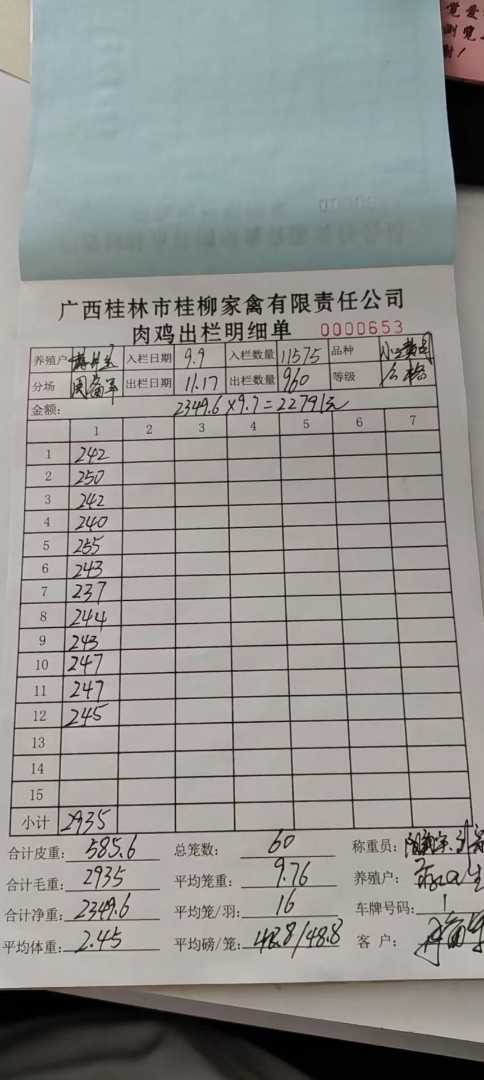 觉爱
浏览
谢！
广西桂林市桂柳家禽有限责任公司
肉鸡出栏明细单 0000653
养殖户 入栏日期 9.9 入栏数量 11575 品种
分场 出栏日期 11.17 出栏数量 960 等级
金额： 2349.6×9.7=22791元
1 2 3 4 5 6 7
1 242
2 250
3 242
4 240
5 255
6 243
7 237
8 244
9 243
10 247
11 247
12 245
13
14
15
小计 2935
合计皮重： 585.6 总笼数： 60 称重员：
合计毛重： 2935 平均笼重： 9.76 养殖户：
合计净重： 2349.6 平均笼/羽： 16 车牌号码：
平均体重： 2.45 平均磅/笼： 48.8/48.8 客 户：